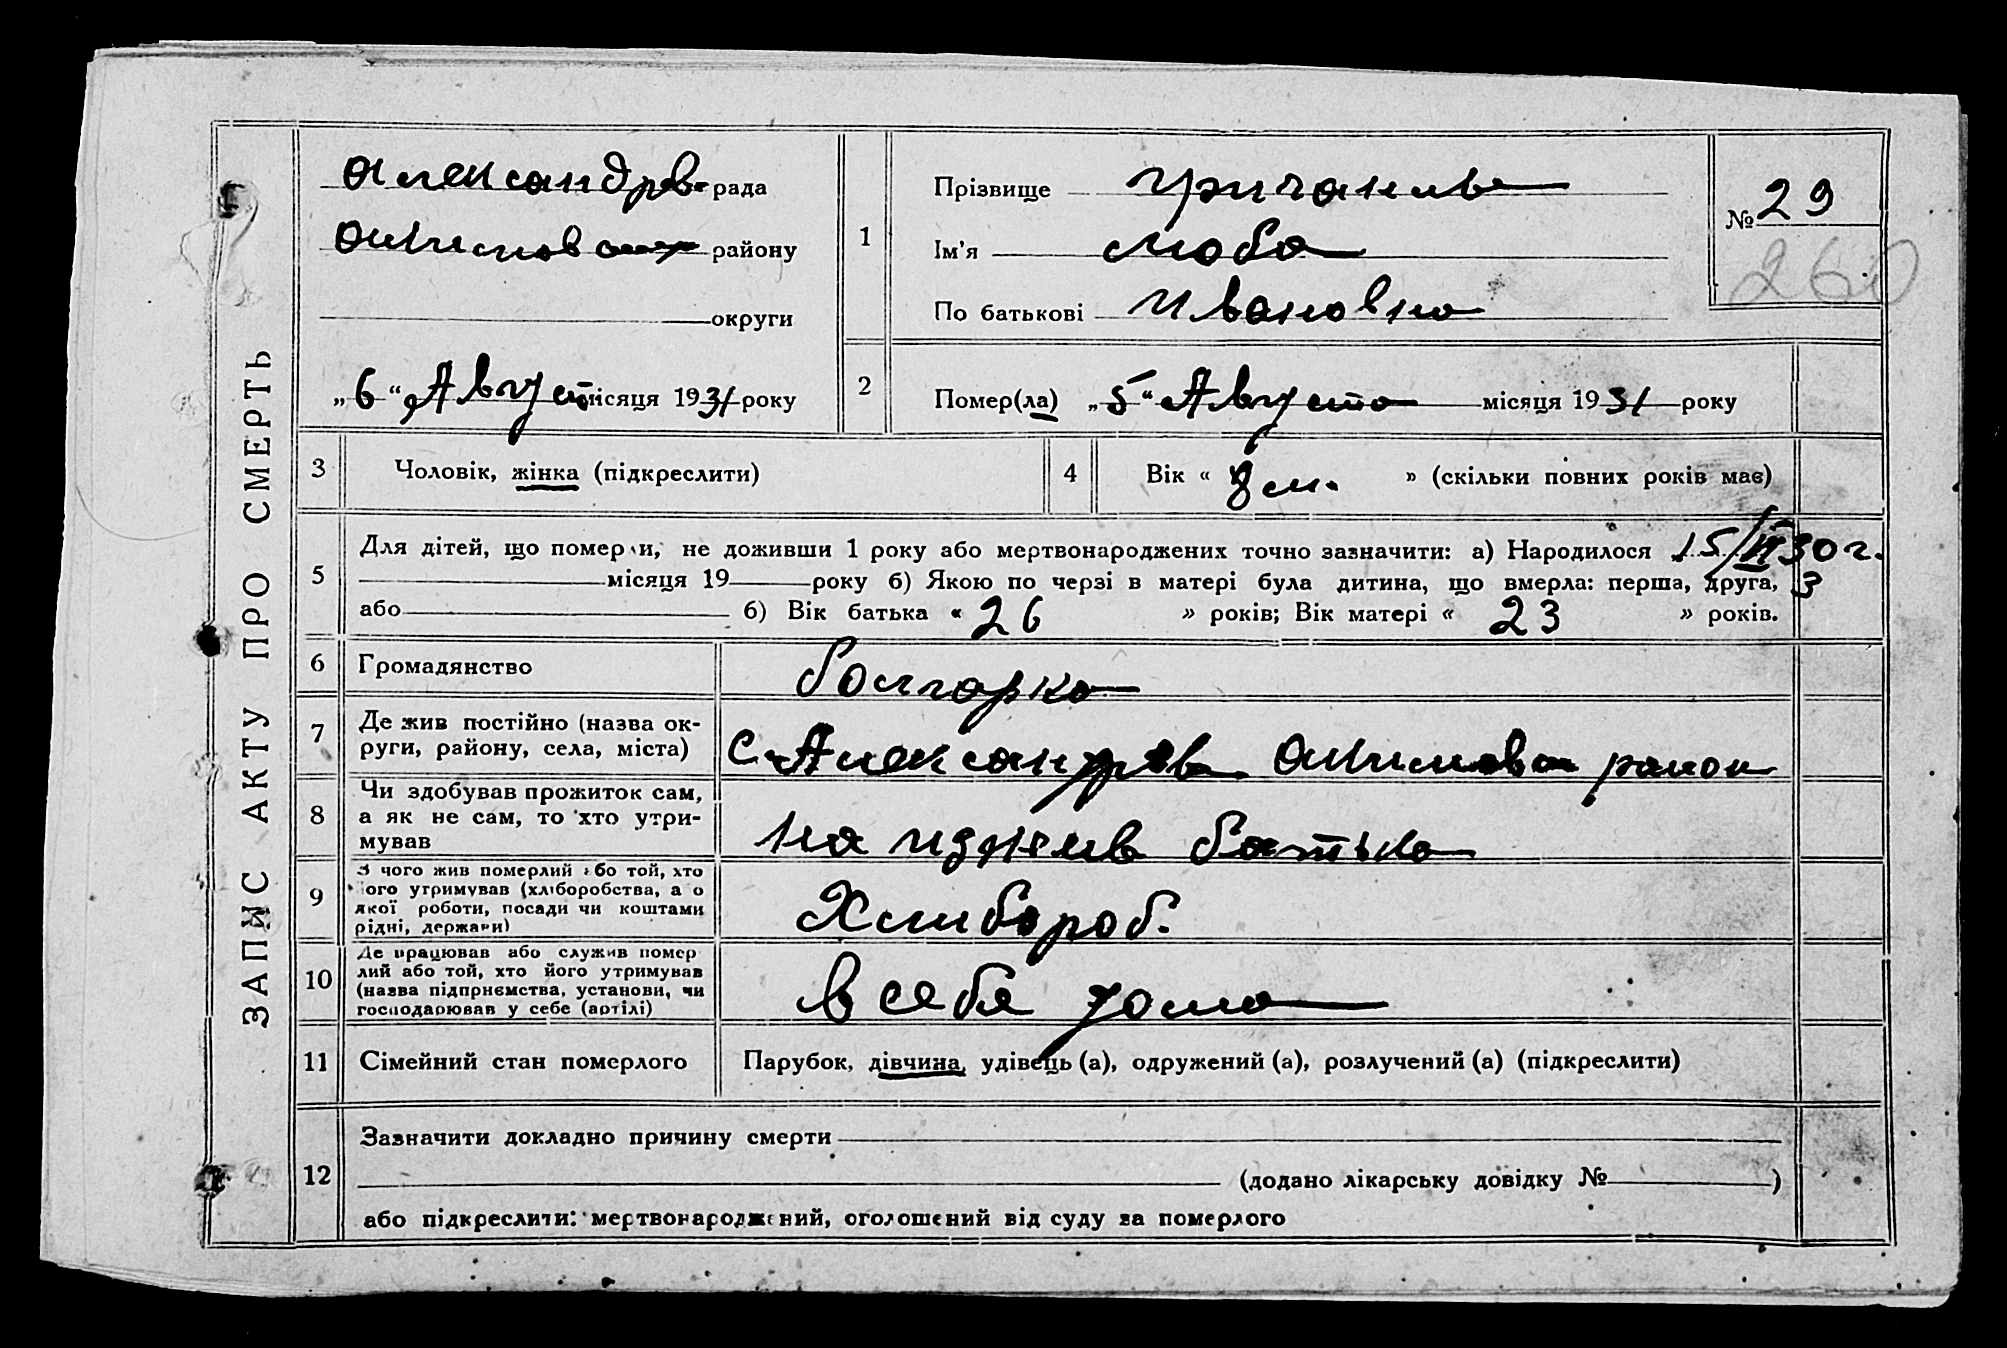 ЗАПИС АКТУ ПРО СМЕРТЬ
Александров рада
района
округи
„6“ Август місяця 1931 року
1
Прізвище
Ім'я Люба
По батькові Ивановна
№ 29
260
2 Помер(ла) „5“ Августа місяця 1931 року
3 Чоловік, жінка (підкреслити)
4 Вік « 8 м. » (скільки повних років має)
5 Для дітей, що померли, не доживши 1 року або мертвонароджених точно зазначити: а) Народилося 15/ 30 г.
місяця 19 року б) Якою по черзі в матері була дитина, що вмерла: перша, друга, 3
або б) Вік батька « 26 » років; Вік матері « 23 » років.
6 Громадянство болгарка
7 Де жив постійно (назва округи, району, села, міста) с. Александров Акимовск район
8 Чи здобував прожиток сам, а як не сам, то хто утримував на иждив батька
9 З чого жив померлий або той, хто його утримував (хліборобства, а о якої роботи, посади чи коштами рідні, держави) Хлибороб.
10 Де працював або служив померлий або той, хто його утримував (назва підприємства, установи, чи господарював у себе (артілі) в себя дома
11 Сімейний стан померлого Парубок, дівчина, удівець (а), одружений (а), розлучений (а) (підкреслити)
12 Зазначити докладно причину смерти
(додано лікарську довідку № )
або підкреслити: мертвонароджений, оголошений від суду за померлого